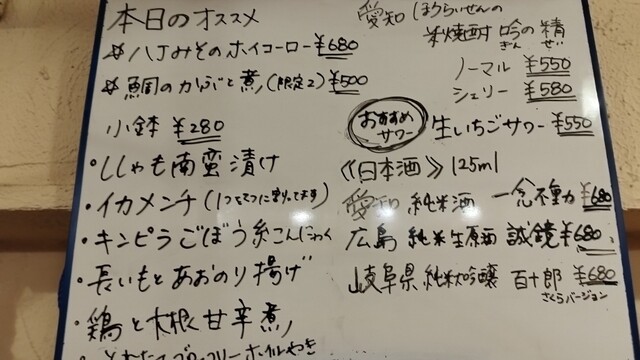 本日のオススメ
☆ 八丁みそのホイコーロー ¥680
☆ 鯛のかぶと煮 (限定2) ¥500
小鉢 ¥280
・ししゃも南蛮漬け
・イカメンチ (1つを2つに割ってます)
・キンピラごぼう糸こんにゃく
・長いもとあおのり揚げ
・鶏と大根甘辛煮
愛知 ほうらいせんの
米焼酎 吟の精
ぎん せい
ノーマル ¥550
シェリー ¥580
おすすめ
サワー
生いちごサワー ¥550
《日本酒》 125ml
愛知 純米酒 一念不動 ¥680
広島 純米生原酒 誠鏡 ¥680
岐阜県 純米大吟醸 百十郎 ¥680
さくらバージョン